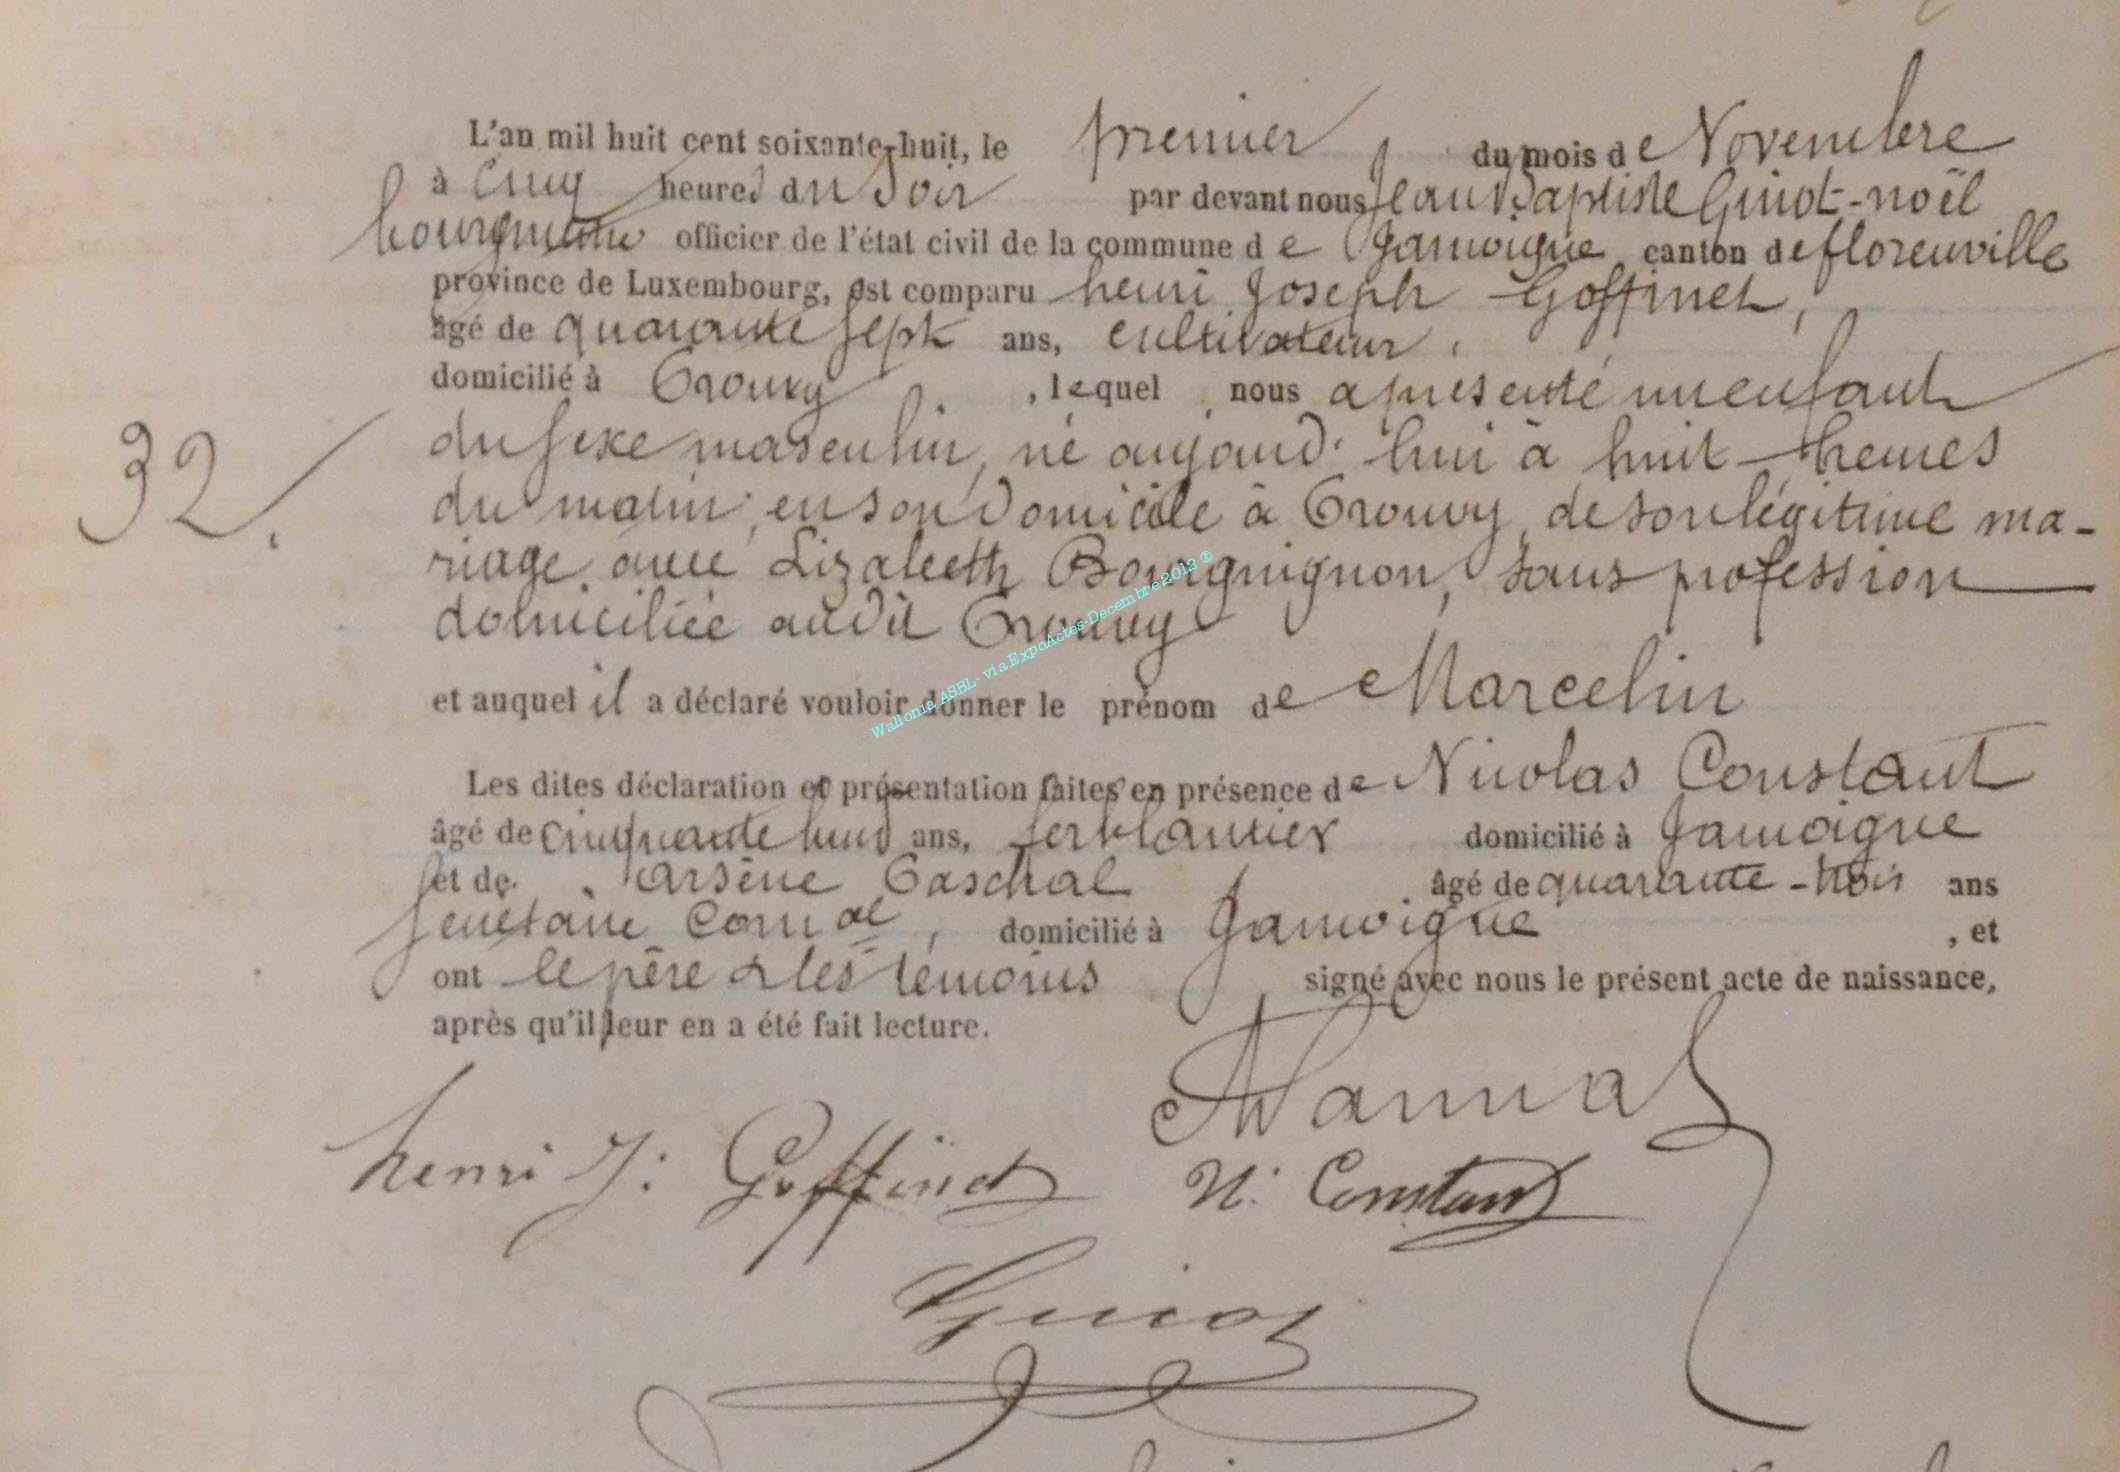 L'an mil huit cent soixante-huit, le premier du mois de Novembre
à cinq heures du soir par devant nous Jean Baptiste Guiot-noël
bourgmestre officier de l'état civil de la commune de Jamoigne canton de florenville
province de Luxembourg, est comparu henri Joseph Goffinet,
âgé de quarante sept ans, cultivateur,
domicilié à Prouvy, lequel nous a présenté un enfant
32. du sexe masculin, né aujourd'hui à huit heures
du matin, en son domicile à Prouvy, de son légitime ma-
riage avec Lizabeth Bourguignon, sans profession
domiciliée au dit Prouvy
Wallonie ASBL - via ExpoActes-Decembre 2013 ©
et auquel il a déclaré vouloir donner le prénom de Marcelin
Les dites déclaration et présentation faites en présence de Nicolas Constant
âgé de cinquante huit ans, ferblantier domicilié à Jamoigne
et de arsène Paschal âgé de quarante-trois ans
secrétaire comal, domicilié à Jamoigne, et
ont le père & les témoins signé avec nous le présent acte de naissance,
après qu'il leur en a été fait lecture.
henri J: Goffinet
N: Constant
Guiot